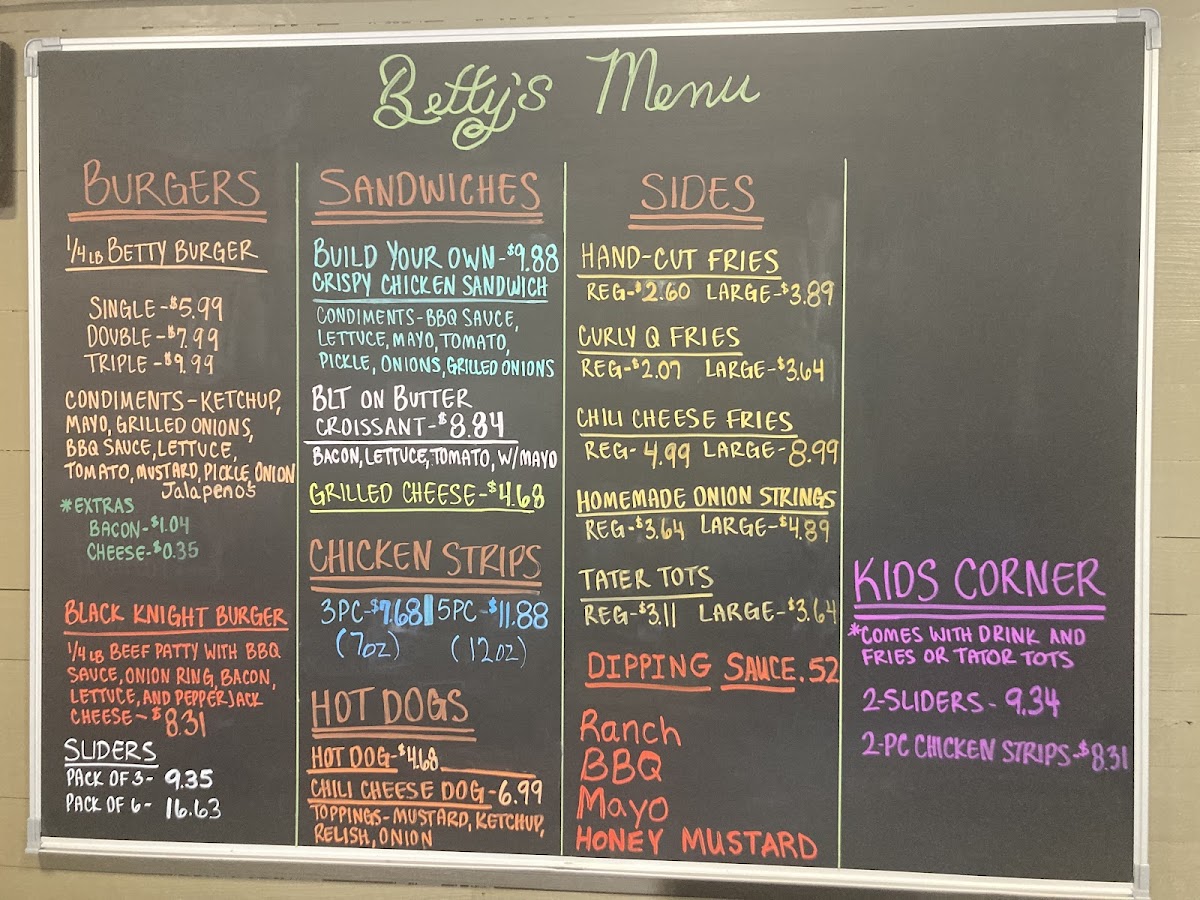 Betty's Menu
BURGERS
1/4 LB BETTY BURGER
SINGLE-$5.99
DOUBLE-$7.99
TRIPLE-$9.99
CONDIMENTS-KETCHUP,
MAYO, GRILLED ONIONS,
BBQ SAUCE, LETTUCE,
TOMATO, MUSTARD, PICKLE, ONION
Jalapenos
*EXTRAS
BACON-$1.04
CHEESE-$0.35
BLACK KNIGHT BURGER
1/4 LB BEEF PATTY WITH BBQ
SAUCE, ONION RING, BACON,
LETTUCE, AND PEPPERJACK
CHEESE-$8.31
SLIDERS
PACK OF 3- 9.35
PACK OF 6- 16.63
SANDWICHES
BUILD YOUR OWN-$9.88
CRISPY CHICKEN SANDWICH
CONDIMENTS-BBQ SAUCE,
LETTUCE, MAYO, TOMATO,
PICKLE, ONIONS, GRILLED ONIONS
BLT ON BUTTER
CROISSANT-$8.84
BACON, LETTUCE, TOMATO, W/MAYO
GRILLED CHEESE-$4.68
CHICKEN STRIPS
3PC-$7.68 | 5PC-$11.88
(7oz) (12oz)
HOT DOGS
HOT DOG-$4.68
CHILI CHEESE DOG-6.99
TOPPINGS-MUSTARD, KETCHUP,
RELISH, ONION
SIDES
HAND-CUT FRIES
REG-$2.60 LARGE-$3.89
CURLY Q FRIES
REG-$2.07 LARGE-$3.64
CHILI CHEESE FRIES
REG- 4.99 LARGE-8.99
HOMEMADE ONION STRINGS
REG-$3.64 LARGE-$4.89
TATER TOTS
REG-$3.11 LARGE-$3.64
DIPPING SAUCE .52
Ranch
BBQ
Mayo
HONEY MUSTARD
KIDS CORNER
*COMES WITH DRINK AND
FRIES OR TATOR TOTS
2-SLIDERS- 9.34
2-PC CHICKEN STRIPS-$8.31